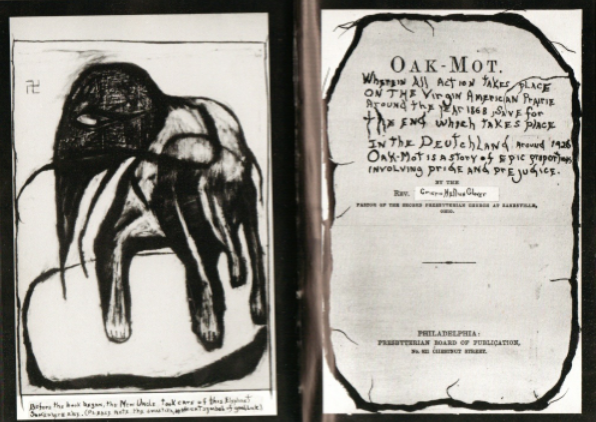 Before the book began, the New Uncle took care of this Elephant
Somewhere else. (Please note the ancient symbol of good luck)
OAK-MOT.
WHEREIN ALL ACTION TAKES PLACE
ON THE VIRGIN AMERICAN PRAIRIE
AROUND THE YEAR 1868, SAVE FOR
THE END WHICH TAKES PLACE
IN THE DEUTCHLAND AROUND 1926
OAK-MOT IS A STORY OF EPIC PROPORTIONS
INVOLVING PRIDE AND PREJUDICE.
BY THE
REV.
PASTOR OF THE SECOND PRESBYTERIAN CHURCH AT ZANESVILLE,
OHIO.
PHILADELPHIA:
PRESBYTERIAN BOARD OF PUBLICATION,
No. 821 CHESTNUT STREET.